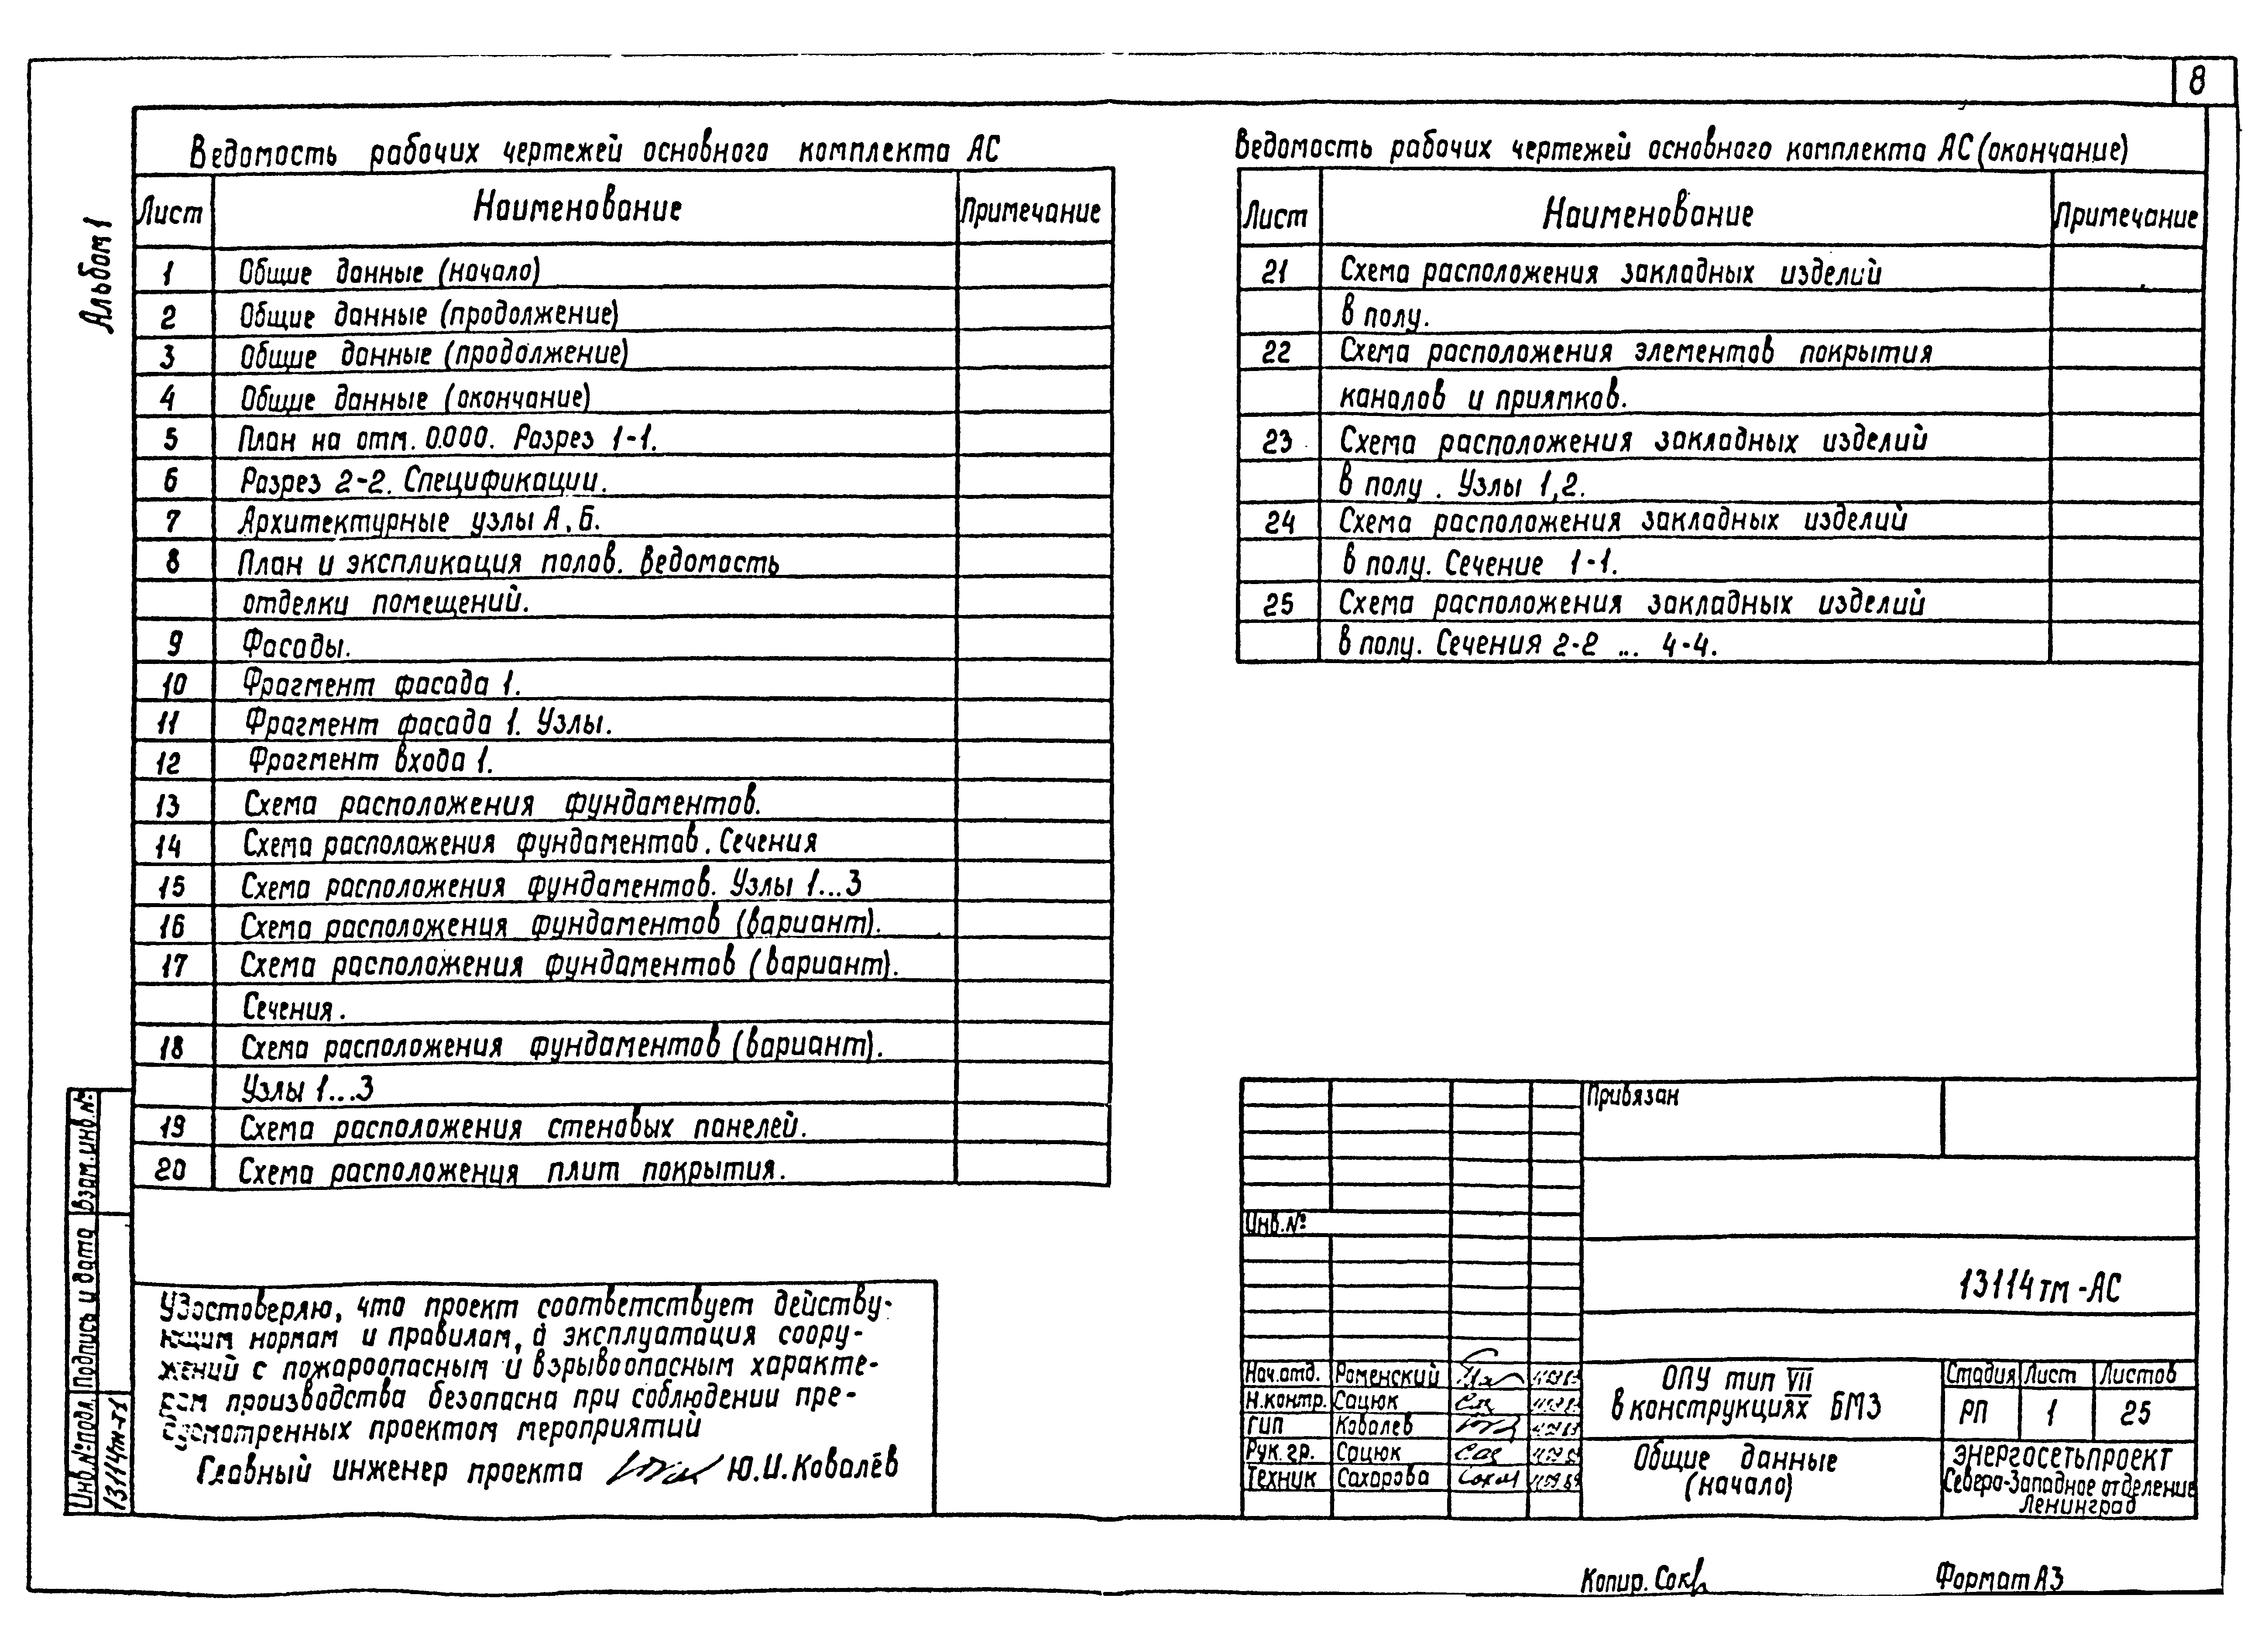 8
Альбом 1
Ведомость рабочих чертежей основного комплекта АС
Лист Наименование Примечание
1 Общие данные (начало)
2 Общие данные (продолжение)
3 Общие данные (продолжение)
4 Общие данные (окончание)
5 План на отм. 0.000. Разрез 1-1.
6 Разрез 2-2. Спецификации.
7 Архитектурные узлы А, Б.
8 План и экспликация полов. Ведомость
отделки помещений.
9 Фасады.
10 Фрагмент фасада 1.
11 Фрагмент фасада 1. Узлы.
12 Фрагмент входа 1.
13 Схема расположения фундаментов.
14 Схема расположения фундаментов. Сечения
15 Схема расположения фундаментов. Узлы 1...3
16 Схема расположения фундаментов (вариант).
17 Схема расположения фундаментов (вариант).
Сечения.
18 Схема расположения фундаментов (вариант).
Узлы 1...3
19 Схема расположения стеновых панелей.
20 Схема расположения плит покрытия.
Ведомость рабочих чертежей основного комплекта АС (окончание)
Лист Наименование Примечание
21 Схема расположения закладных изделий
в полу.
22 Схема расположения элементов покрытия
каналов и приямков.
23 Схема расположения закладных изделий
в полу. Узлы 1,2.
24 Схема расположения закладных изделий
в полу. Сечение 1-1.
25 Схема расположения закладных изделий
в полу. Сечения 2-2 ... 4-4.
Удостоверяю, что проект соответствует действу-
ющим нормам и правилам, а эксплуатация соору-
жений с пожароопасным и взрывоопасным характе-
ром производства безопасна при соблюдении пре-
дусмотренных проектом мероприятий
Главный инженер проекта Ю.И. Ковалёв
Взам. инв. №
Подпись и дата
Инв. № подл.
13114тм-т1
Привязан
Инв. №
13114тм-АС
Нач. отд. Роменский
Н. контр. Сацюк
ГИП Ковалев
Рук. гр. Сацюк
Техник Сахарова
ОПУ тип VII
в конструкциях БМЗ
Стадия Лист Листов
РП 1 25
Общие данные
(начало)
Энергосетьпроект
Северо-Западное отделение
Ленинград
Копир.
Формат А3